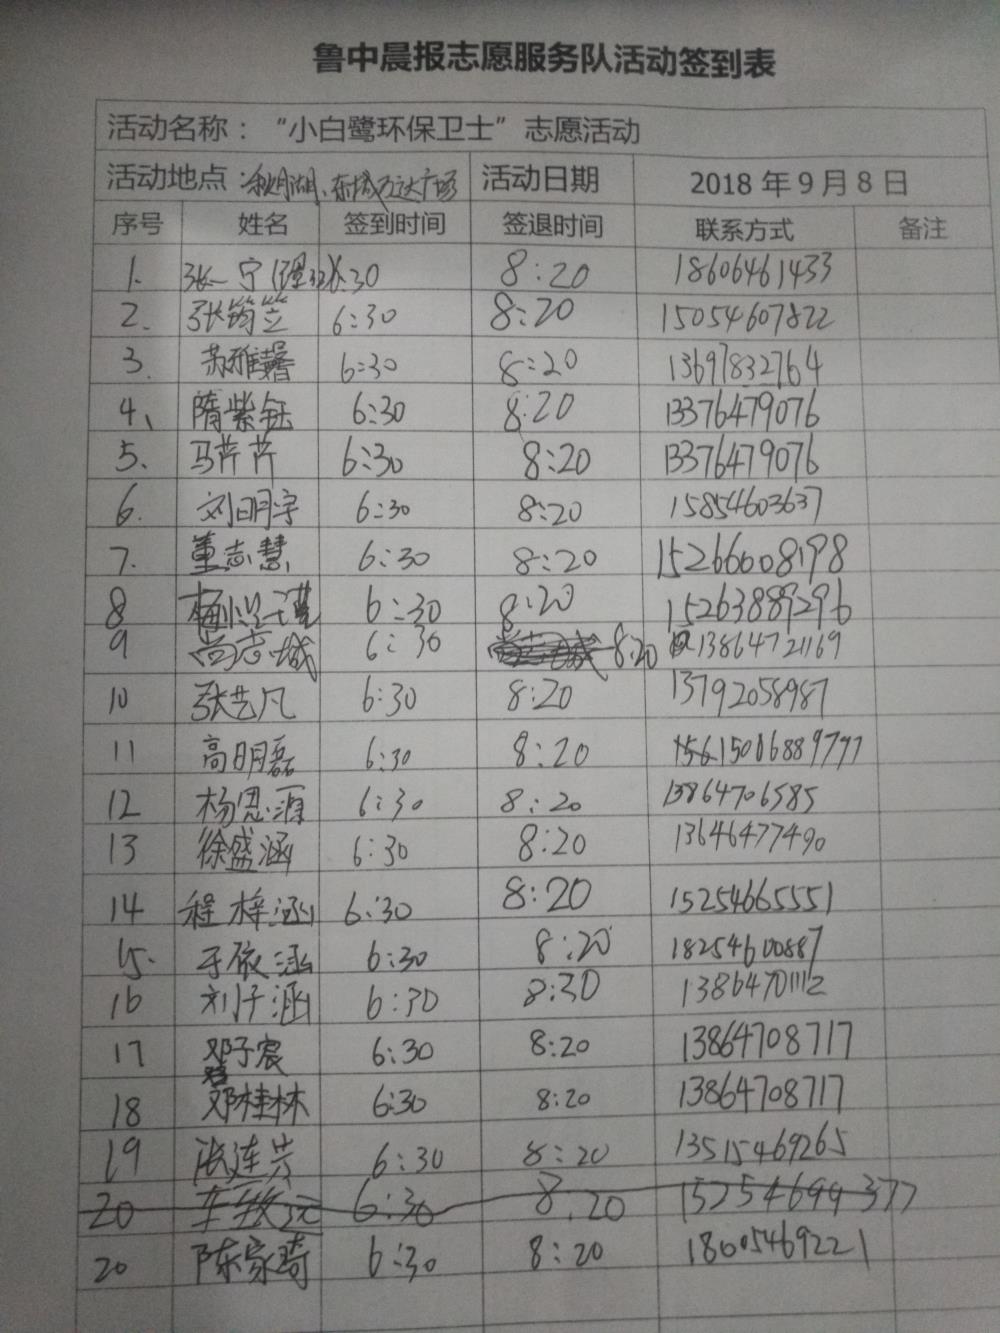 鲁中晨报志愿服务队活动签到表
活动名称：“小白鹭环保卫士”志愿活动
活动地点：秋月湖、东城万达广场 活动日期 2018年9月8日
序号 姓名 签到时间 签退时间 联系方式 备注
1. 张一宁 6:30 8:20 18606461433
2. 张筠笠 6:30 8:20 15054607822
3. 苏雅馨 6:30 8:20 13697832764
4、 隋紫钰 6:30 8:20 13376479076
5、 马芹芹 6:30 8:20 13376479076
6. 刘明宇 6:30 8:20 15854603637
7. 董志慧 6:30 8:20 15266608198
8 6:30 8:20 15263889296
9 尚志城 6:30 8:20 13864721169
10 张艺凡 6:30 8:20 13792058987
11 高明磊 6:30 8:20 15006889777
12 杨恩源 6:30 8:20 13864706585
13 徐盛涵 6:30 8:20 13646477490
14 程梓涵 6:30 8:20 15254665551
15. 于依涵 6:30 8:20 18254600887
16 刘子涵 6:30 8:30 13864701112
17 邓子宸 6:30 8:20 13864708717
18 邓桂林 6:30 8:20 13864708717
19 张连芳 6:30 8:20 13515469265
20 6:30 8.20 15254699377
20 陈家琦 6:30 8:20 18605469221